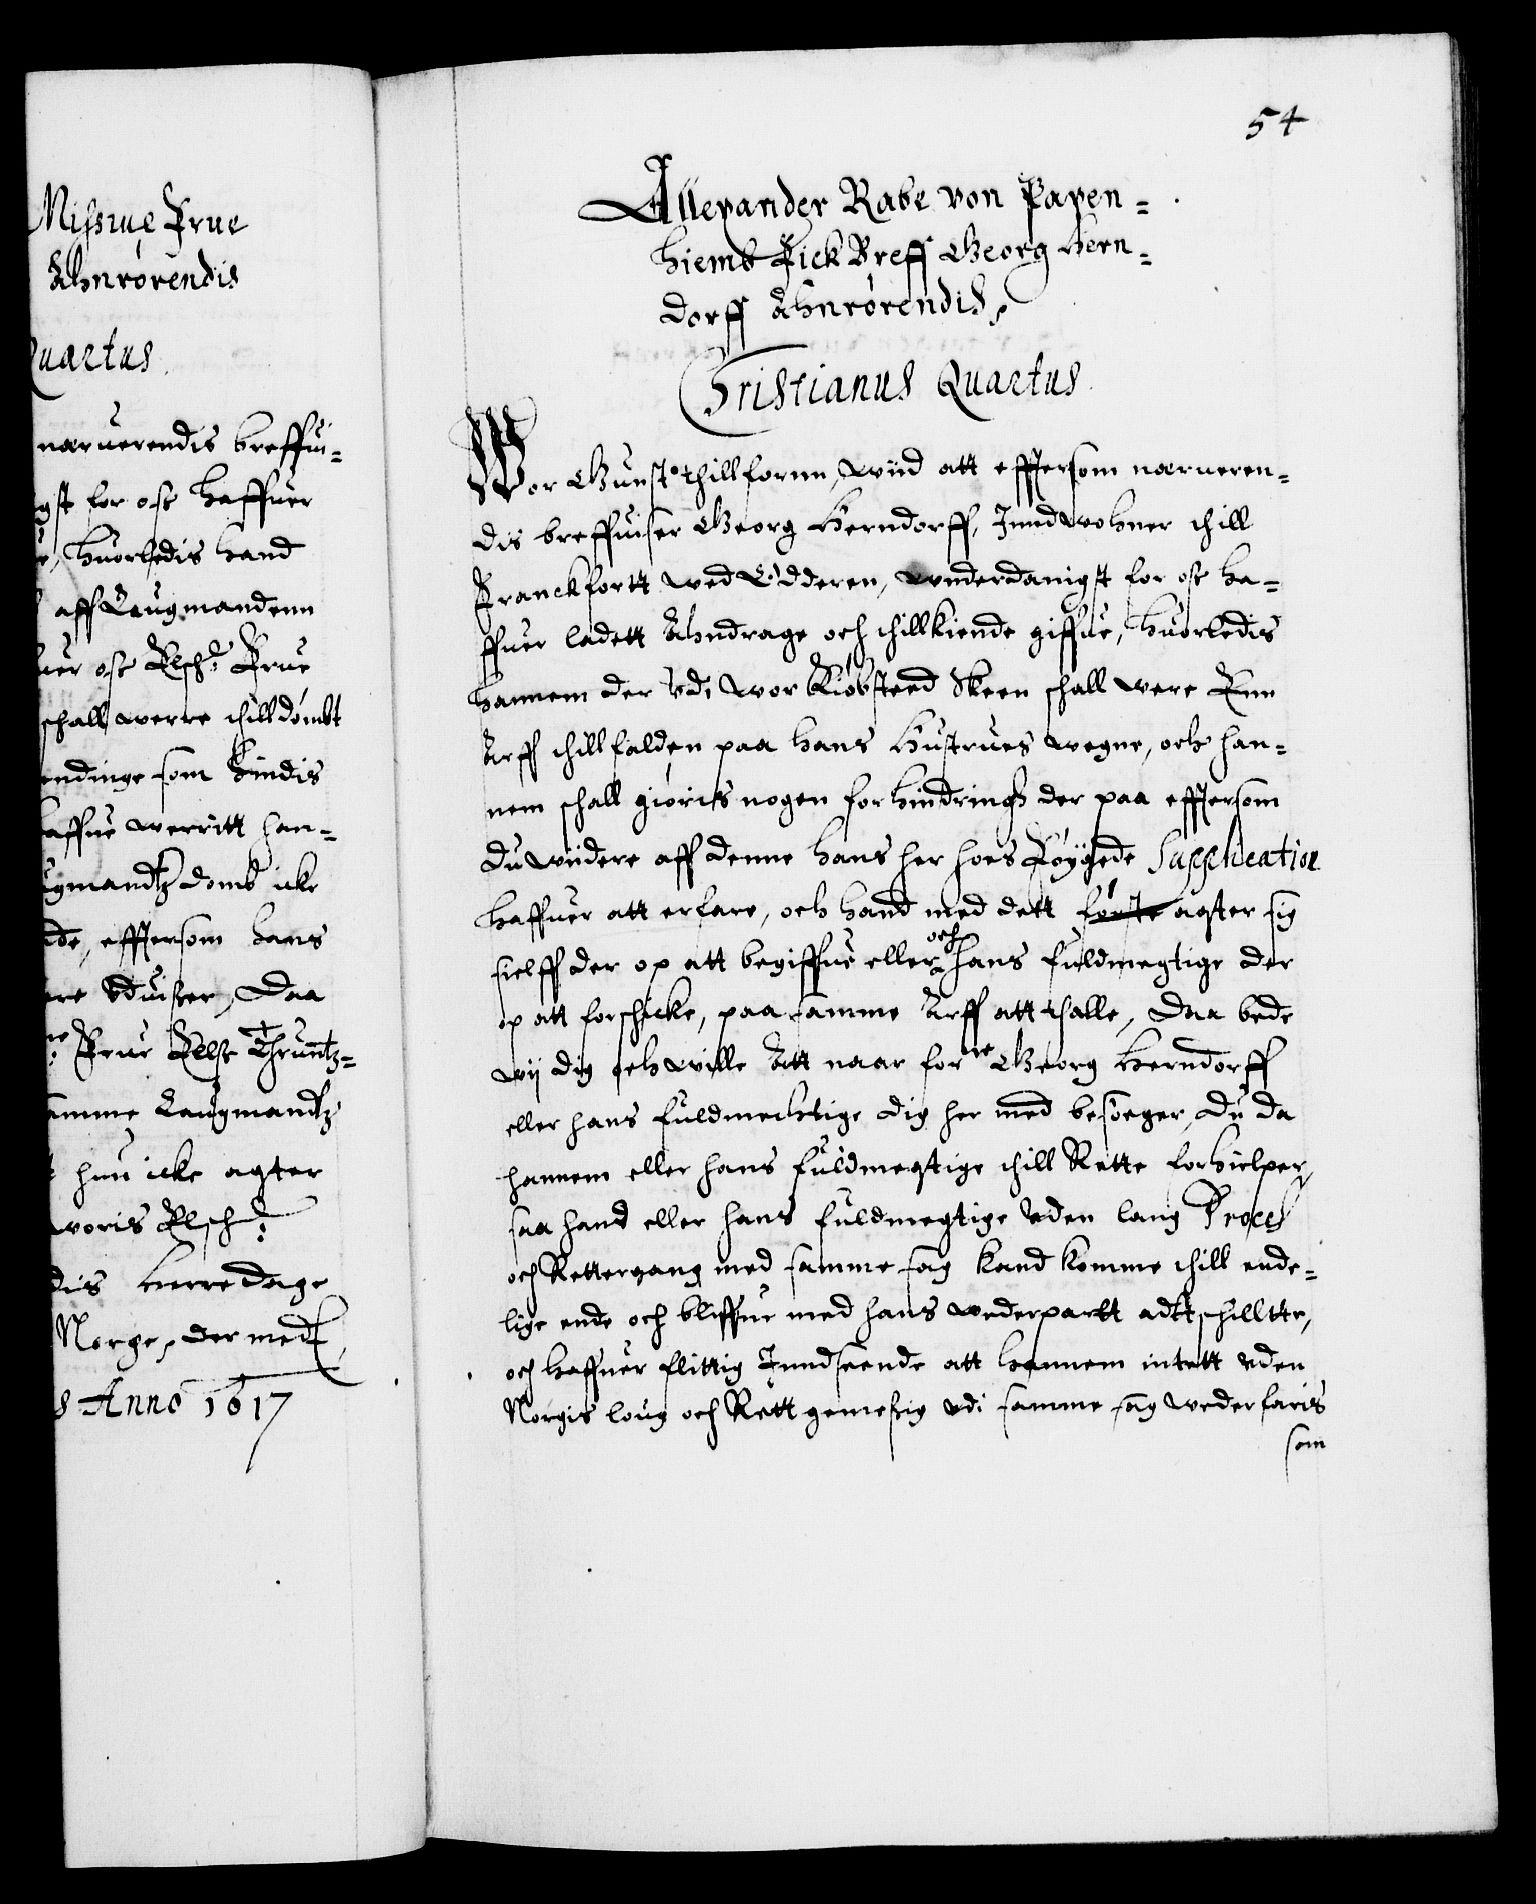 Missiue Frue
Ahnrörendis
Quartus
naruerendis breffui-
gst for oss haffuer
huorledis hand
aff Laugmandenn
uer oss Elsch: Frue
schall werre thilldömbt
endinge som Kindis
haffue werritt han-
ugmandtz domb icke
de, effttersom hans
re Vduiser, Daa
Frue Elsse Thruntz-
amme Laugmandtz
hun icke agter
woris Elsch:
dis herredage
Norge, der medt
s Anno 1617
54
Allexander Rabe von Papen-
hiemb Fick Breff Georg Hern-
dorff Ahnrörendis,
Christianus Quartus
Wor Gunst thillfornn, wiid att efftersom narueren-
dis breffuiser Georg Herndorff, Inndwohner thill
Franckfortt wed Odderen, wnderdanigst for oss ha-
ffuer ladett Ahndrage och thillkiende giffue, huorledis
hannem der Vdi wor Kiöbsteed Skeen schall were Enn
Arff thillfalden paa hans Hustrues wegne, och han-
nem schall giöris nogen forhindring der paa efftersom
du wiidere aff denne hans her hoes Föygede Supplication
haffuer att erfare, och hand med dett förste agter sig
sielff der op att begiffue eller och hans fuldmegtige der
op att forschicke, paa samme Arff att thalle, Daa bede
wij dig och wille Att naar forne Georg Herndorff
eller hans fuldmechtige dig her med besöeger, du da
hannem eller hans fuldmegtige thill Rette forhielper,
saa hand eller hans fuldmegtige vden lang Process
och Rettergang med samme sag kand komme thill ende-
lige ende och bliffue med hans wederpartt adtschilltte,
och haffuer flittig Inndseende att hannem intett vden
Norgis loug och Rett gemessig vdi samme sag wederfaris
som